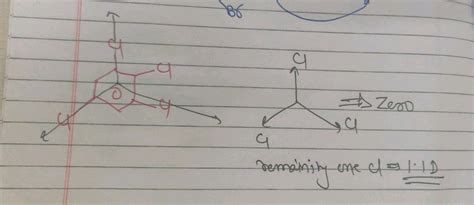 Br
Cl
Cl
Cl
Cl
Cl
Cl
Cl
⇒ Zero
remaining one Cl = 1.1D